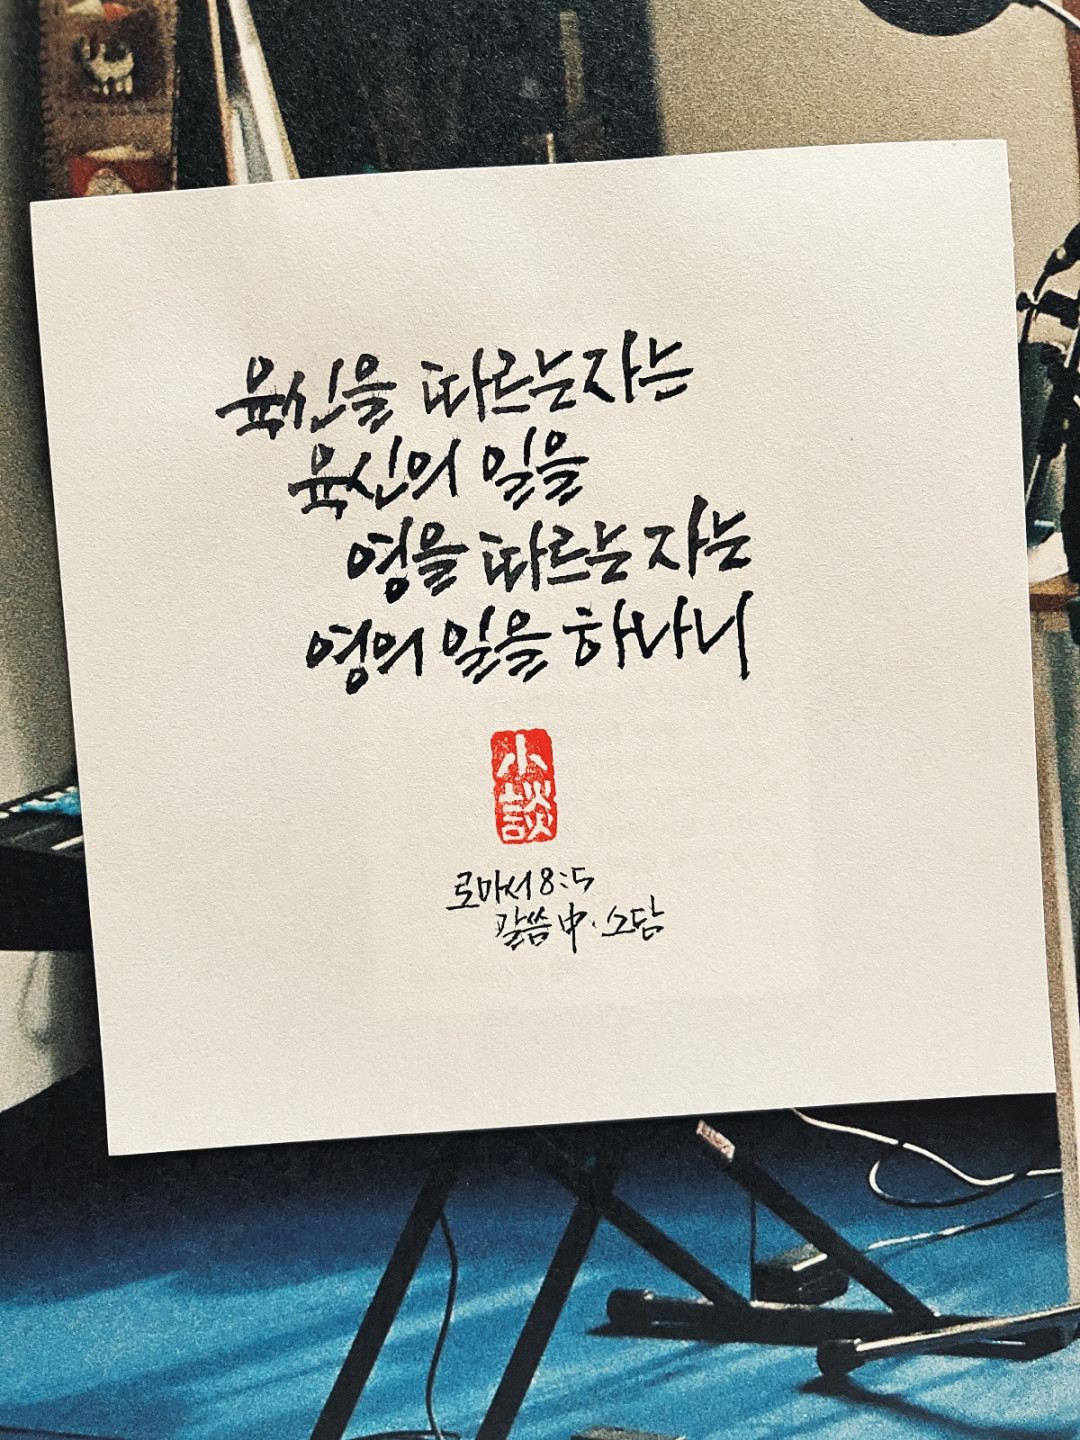 육신을 따르는 자는
육신의 일을
영을 따르는 자는
영의 일을 하나니
小
談
로마서 8:5
말씀 中. 소담